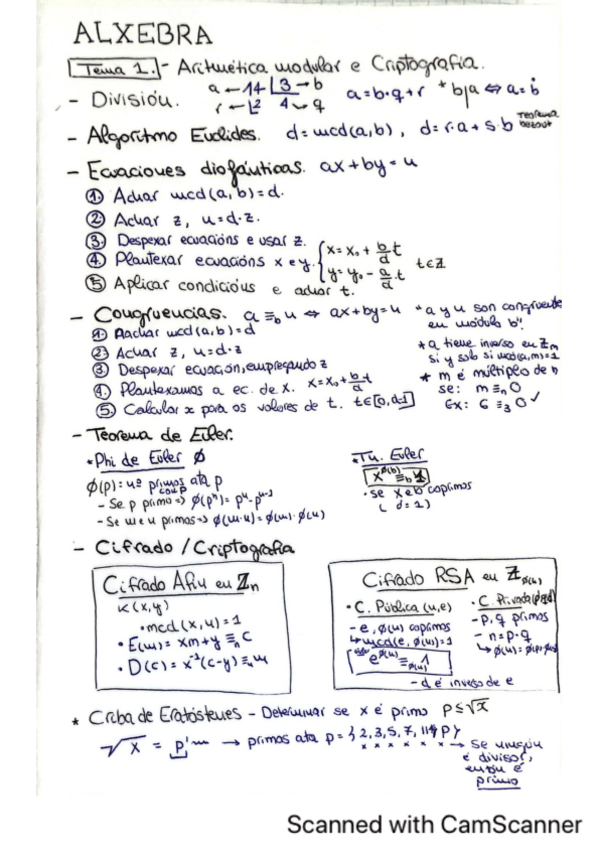 ALXEBRA
Tema 1. - Aritmética modular e Criptografía.
- División. a ← 14 | 3 → b a = b·q + r * b|a ⇔ a = ḃ
r ← 2 4 → q
- Algoritmo Euclides. d = mcd(a,b), d = r·a + s·b Teorema bezout
- Ecuaciones diofánticas. ax + by = u
① Achar mcd(a,b) = d.
② Achar z, u = d·z.
③ Despexar ecuacións e usar z.
④ Plantexar ecuacións x e y. { x = x₀ + b/d t
y = y₀ - a/d·t t ∈ ℤ
⑤ Aplicar condicións e achar t.
- Congruencias. a ≡b u ⇔ ax + by = u "a y u son congruente
en módulo b".
① Achar mcd(a,b) = d
② Achar z, u = d·z
③ Despexar ecuación, empregando z
④ Plantexamos a ec. de x. x = x₀ + b/d t
⑤ Calcular x para os valores de t. t ∈ [0, d-1]
* a tiene inverso en ℤm
si y solo si mcd(a,m) = 1
* m é múltiplo de n
se: m ≡n 0
Ex: 6 ≡3 0 ✓
- Teorema de Euler.
• Phi de Euler ø
ø(p): nº primos ata p
con p
- Se p primo => ø(pⁿ) = pⁿ - pⁿ⁻¹
- Se m e u primos => ø(m·u) = ø(m)·ø(u)
• Tu. Euler
x^ø(b) ≡b 1
• se x e b coprimos
(d = 1)
- Cifrado / Criptografía
Cifrado Afín en ℤn
K(x,y)
• mcd(x,u) = 1
• E(m) = xm + y ≡n c
• D(c) = x⁻¹(c-y) ≡n m
Cifrado RSA en ℤø(u)
• C. Pública (u,e)
- e, ø(u) coprimos
↳ mcd(e, ø(u)) = 1
e^ø(u) ≡ 1
• C. Privada (p,q,d)
- p, q primos
- n = p·q
- d é inverso de e
* Criba de Eratóstenes - Determinar se x é primo p ≤ √x
√x = p'... → primos ata p = { 2, 3, 5, 7, 11, p }
→ Se ningún
é divisor,
entón é
primo
Scanned with CamScanner